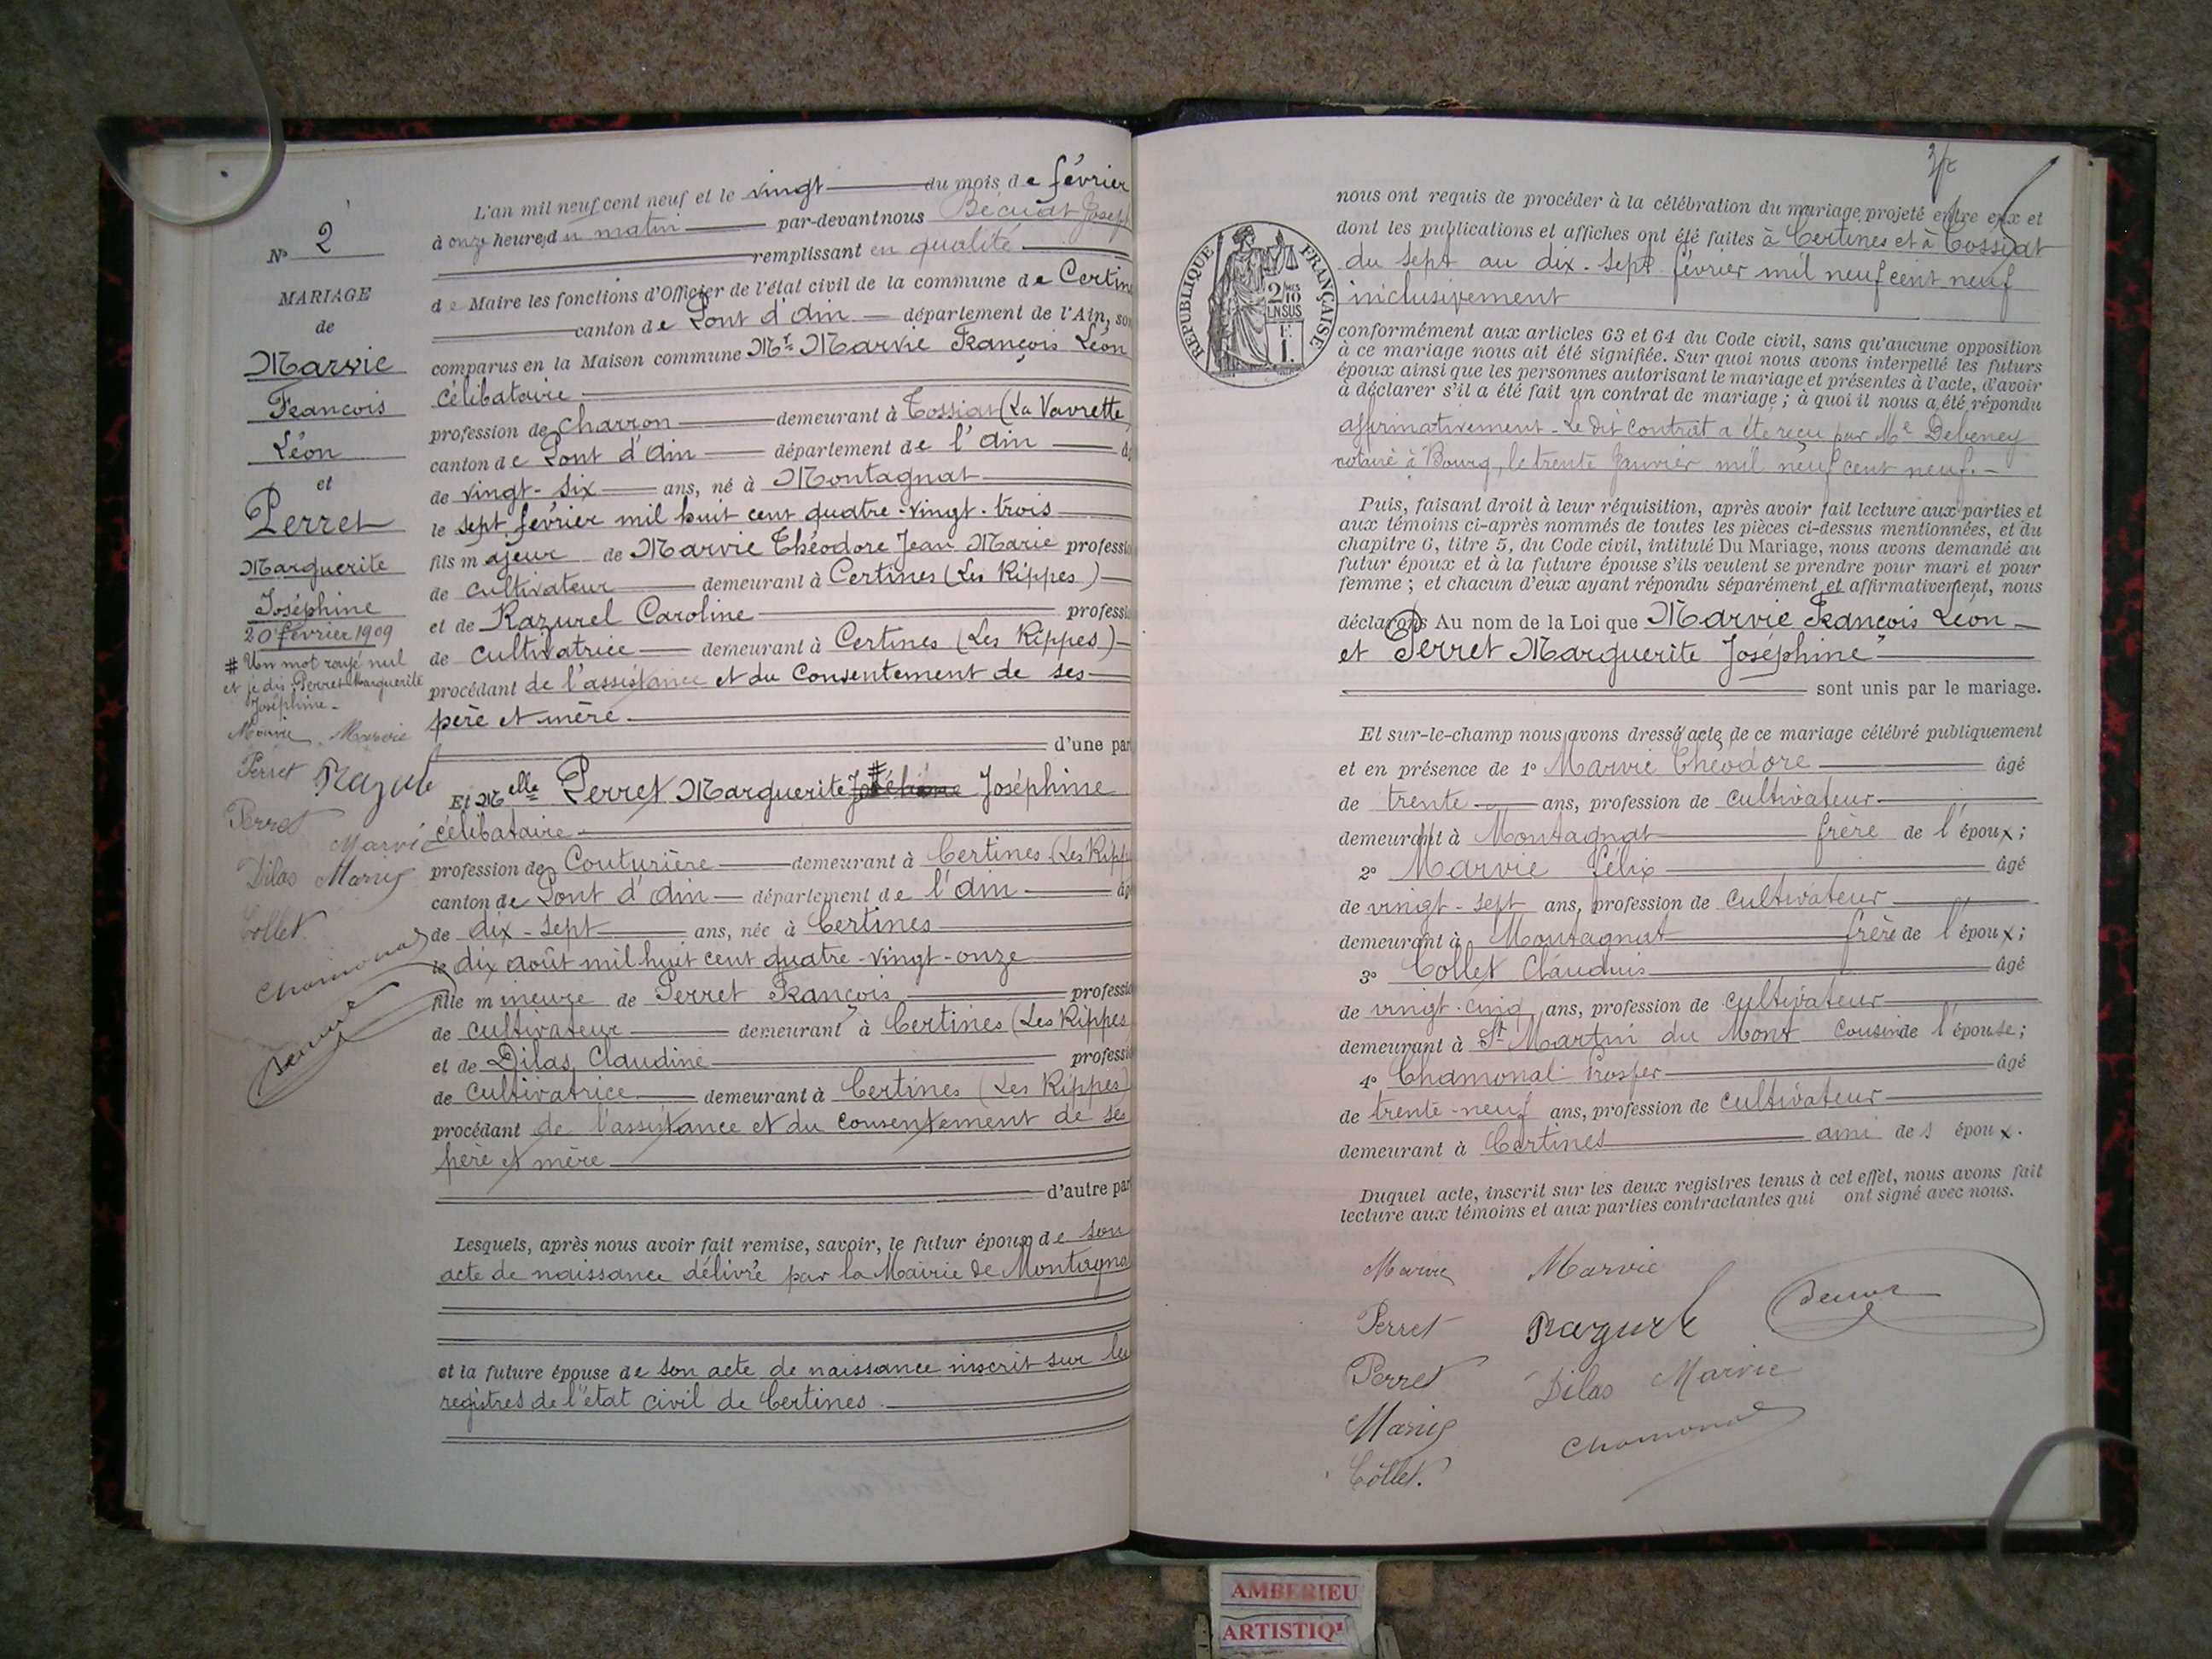 N° 2
MARIAGE
de
Marvie
François
Léon
et
Perret
Marguerite
Joséphine
20 février 1909
# Un mot rayé nul
et je dis : Perret Marguerite
Joséphine.
Marvie Marvie
Perret Razurel
Perret
Marvie
Dilas Marvie
Collet
Chamonal
L'an mil neuf cent neuf et le vingt du mois de février
à onze heures du matin par-devant nous Bécuat Joseph
remplissant en qualité
de Maire les fonctions d'Officier de l'état civil de la commune de Certin
canton de Pont d'Ain département de l'Ain, son
comparus en la Maison commune Mr Marvie François Léon
célibataire
profession de charron demeurant à Tossiat (La Vavrette
canton de Pont d'Ain département de l'Ain
de vingt-six ans, né à Montagnat
le sept février mil huit cent quatre-vingt-trois
fils majeur de Marvie Théodore Jean Marie professi
de cultivateur demeurant à Certines (Les Rippes)
et de Razurel Caroline professi
de cultivatrice demeurant à Certines (Les Rippes)
procédant de l'assistance et du consentement de ses
père et mère
d'une par
Et Melle Perret Marguerite # Joséphine
célibataire
profession de Couturière demeurant à Certines (Les Ripp
canton de Pont d'Ain département de l'Ain âg
de dix-sept ans, née à Certines
le dix août mil huit cent quatre-vingt-onze
fille mineure de Perret François professi
de cultivateur demeurant à Certines (Les Rippes
et de Dilas Claudine professi
de cultivatrice demeurant à Certines (Les Rippes)
procédant de l'assistance et du consentement de ses
père et mère
d'autre par
Lesquels, après nous avoir fait remise, savoir, le futur époux de son
acte de naissance délivré par la Mairie de Montagna
et la future épouse de son acte de naissance inscrit sur les
registres de l'état civil de Certines.
RÉPUBLIQUE FRANÇAISE
2/10 EN SUS
F.
1.
nous ont requis de procéder à la célébration du mariage projeté entre eux et
dont les publications et affiches ont été faites à Certines et à Tossiat
du sept au dix-sept février mil neuf cent neuf
inclusivement
conformément aux articles 63 et 64 du Code civil, sans qu'aucune opposition
à ce mariage nous ait été signifiée. Sur quoi nous avons interpellé les futurs
époux ainsi que les personnes autorisant le mariage et présentes à l'acte, d'avoir
à déclarer s'il a été fait un contrat de mariage ; à quoi il nous a été répondu
affirmativement. Le dit contrat a été reçu par Me Debeney
notaire à Bourg, le trente Janvier mil neuf cent neuf.
Puis, faisant droit à leur réquisition, après avoir fait lecture aux parties et
aux témoins ci-après nommés de toutes les pièces ci-dessus mentionnées, et du
chapitre 6, titre 5, du Code civil, intitulé Du Mariage, nous avons demandé au
futur époux et à la future épouse s'ils veulent se prendre pour mari et pour
femme ; et chacun d'eux ayant répondu séparément et affirmativement, nous
déclarons Au nom de la Loi que Marvie François Léon
et Perret Marguerite Joséphine
sont unis par le mariage.
Et sur-le-champ nous avons dressé acte de ce mariage célébré publiquement
et en présence de 1° Marvie Théodore âgé
de trente ans, profession de cultivateur
demeurant à Montagnat frère de l'époux ;
2° Marvie Félix âgé
de vingt-sept ans, profession de cultivateur
demeurant à Montagnat frère de l'époux ;
3° Collet Claudius âgé
de vingt-cinq ans, profession de cultivateur
demeurant à St Martin du Mont cousin de l'épouse ;
4° Chamonal Prosper âgé
de trente-neuf ans, profession de cultivateur
demeurant à Certines ami des époux.
Duquel acte, inscrit sur les deux registres tenus à cet effet, nous avons fait
lecture aux témoins et aux parties contractantes qui ont signé avec nous.
Marvie Marvie
Perret Razurel
Perret Dilas Marvie
Marvie Chamonal
Collet.
AMBERIEU
ARTISTIQ